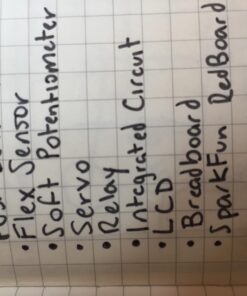 • Flex Sensor
• Soft Potentiometer
• Servo
• Relay
• Integrated Circuit
• LCD
• Breadboard
• SparkFun RedBoard